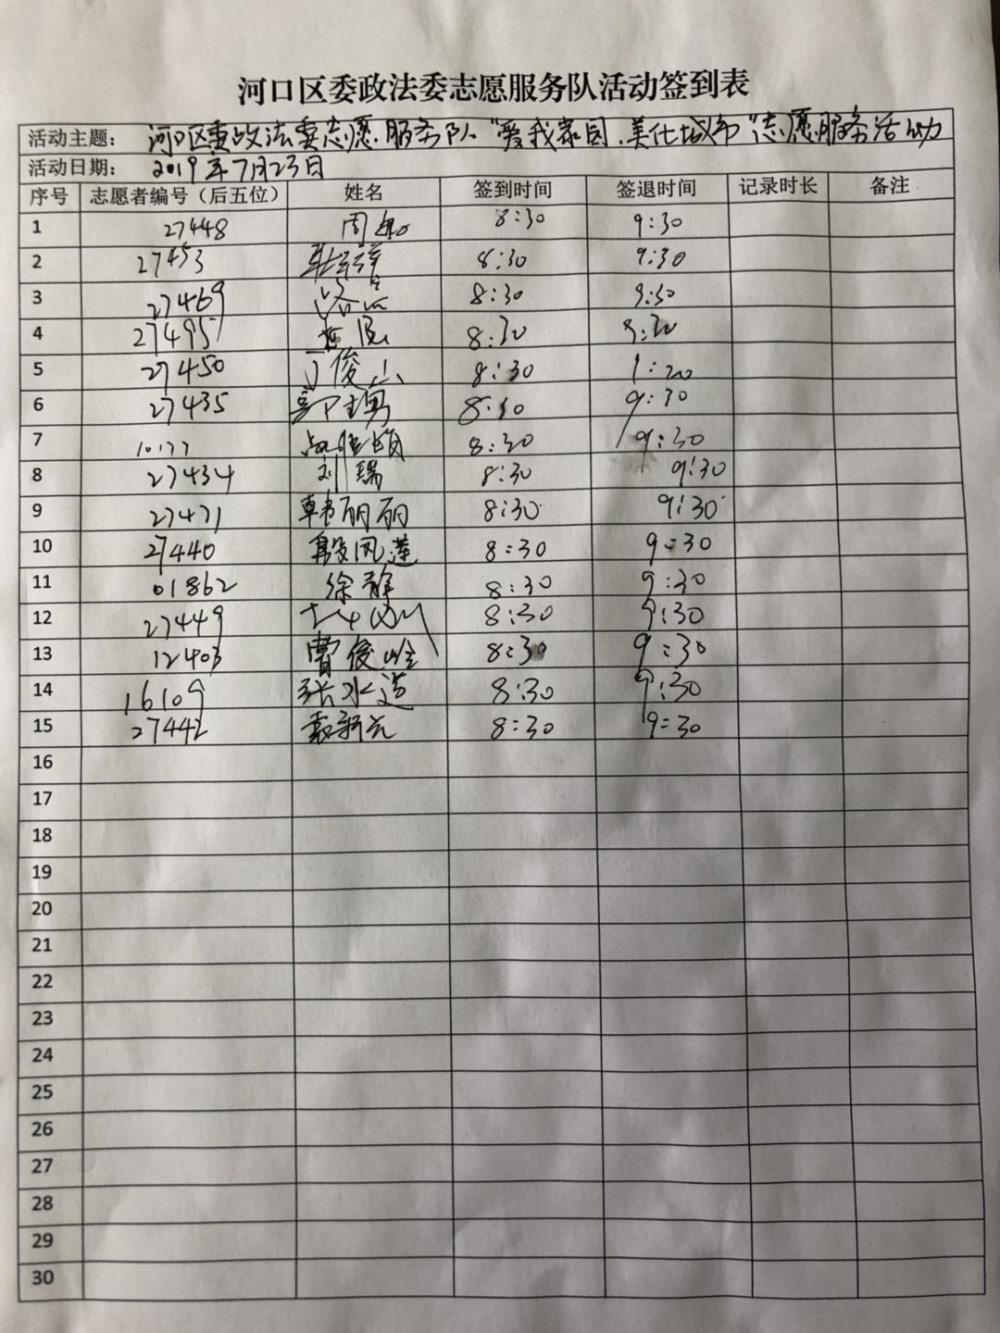 河口区委政法委志愿服务队活动签到表
活动主题： 河口区委政法委志愿服务队"爱我家园,美化城市"志愿服务活动
活动日期： 2019年7月23日
序号 志愿者编号（后五位） 姓名 签到时间 签退时间 记录时长 备注
1 27448 周 8:30 9:30
2 27453 8:30 9:30
3 27469 8:30 9:30
4 27495 8:30 9:30
5 27450 丁俊山 8:30
6 27435 郭 8:30 9:30
7 8:30 9:30
8 27434 刘瑞 8:30 9:30
9 27471 韩丽丽 8:30 9:30
10 27440 殷凤莲 8:30 9:30
11 01862 徐静 8:30 9:30
12 27449 8:30 9:30
13 12403 曹俊岭 8:30 9:30
14 16109 张水造 8:30 9:30
15 27442 袁新 8:30 9:30
16
17
18
19
20
21
22
23
24
25
26
27
28
29
30